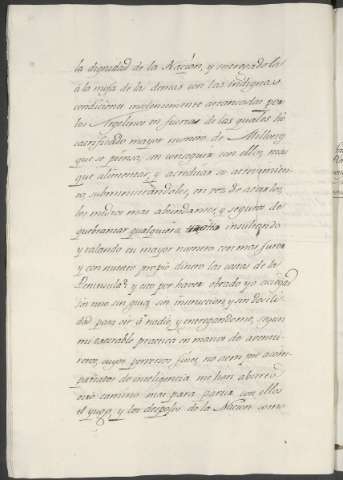 la dignidad de la Nación, y entregadola
á la mofa de las demas con las indignas
condiciones insolentemente arrancadas por
los Argelinos en fuerza de las quales há
sacrificado mayor numero de Millones
que se piensa, sin conseguir con ellos, mas
que alimentar, y acreditar su atrevimien
to, subministrándoles, en vez de atarlos,
los medios mas abundantes, y seguros de
quebrantar qualquiera insultando
y talando en mayor numero con mas fuerza
y con nuestro propio dinero las costas de la
Peninsula: y esto por haver obrado yo
sin uno sin guia, sin instruccion, y sin docili
dad para oir á nadie, y entregandome, segun
mi execrable practica en manos de aventu
reros, cuyos perversos fines, no bien por acom
pañados de inteligencia me han abierto
otro camino mas para partir con ellos
el jugo, y los despojos de la Nacion como